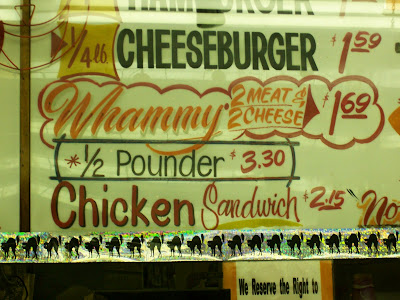 HAMBURGER
1/4 lb. CHEESEBURGER $1.59
Whammy 2 MEAT & 2 CHEESE $1.69
* 1/2 Pounder $3.30
Chicken Sandwich $2.15
We Reserve the Right to